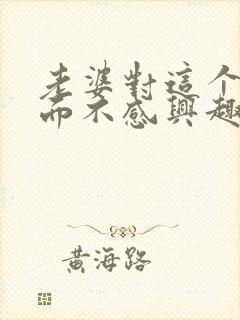 老婆對這个
而不感興趣
黃海路